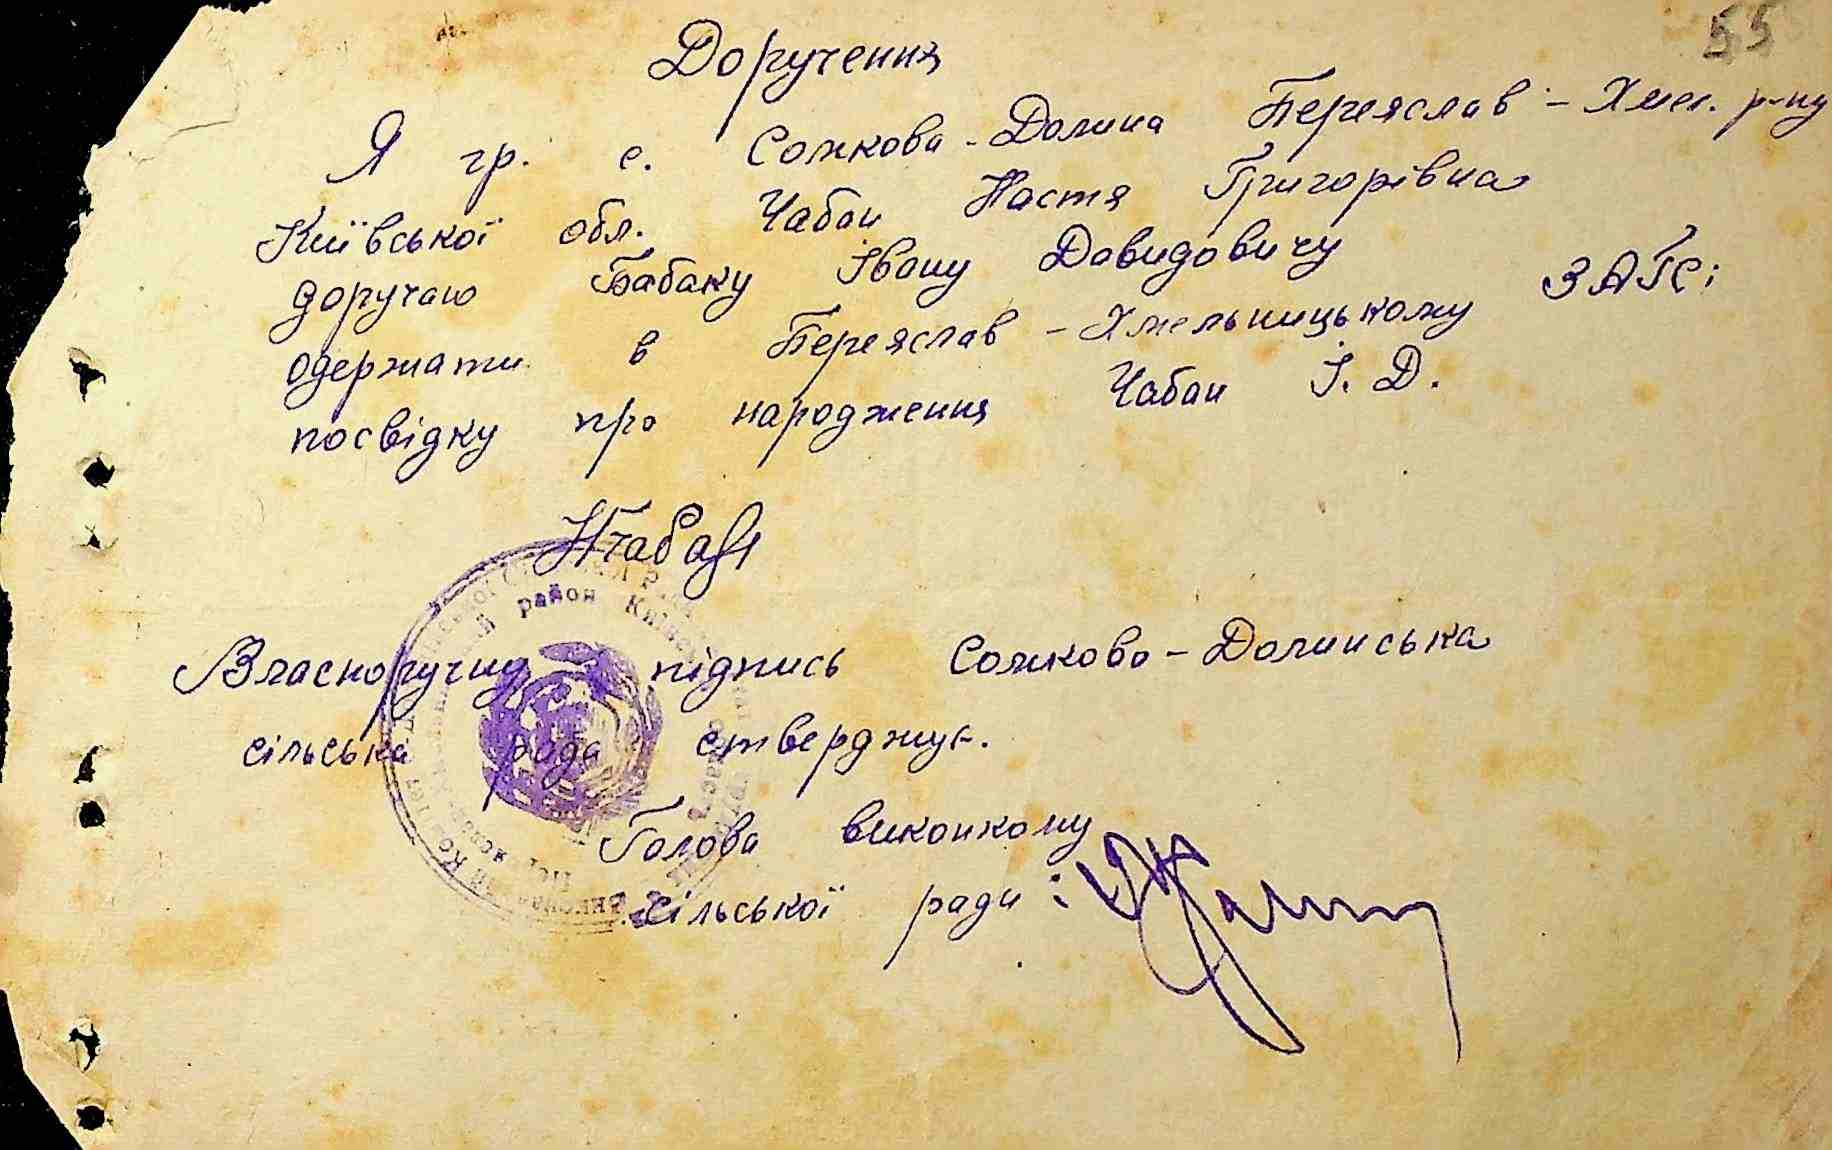 55
Доручення
Я гр. с. Сомкова-Долина Переяслав-Хмел. р-ну
Київської обл. Чабан Настя Григорівна
доручаю Бабаку Івану Давидовичу
одержати в Переяслав-Хмельницькому ЗАГСі
посвідку про народження Чабан І. Д.
НЧабан
Власноручний підпись Сомково-Долинська
сільська рада стверджує.
Голова виконкому
сільської ради:
район Київсь